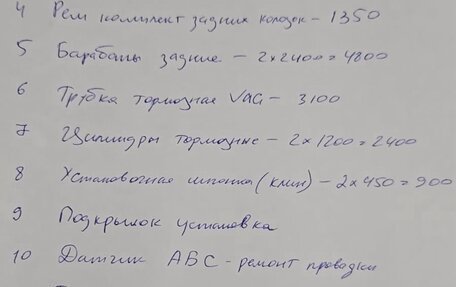 4 Рем комплект задних колодок – 1350
5 Барабаны задние – 2×2400=4800
6 Трубка тормозная VAG – 3100
7 Цилиндры тормозные – 2×1200=2400
8 Установочная шпонка (клин) – 2×450=900
9 Подкрылок установка
10 Датчик АБС - ремонт проводки